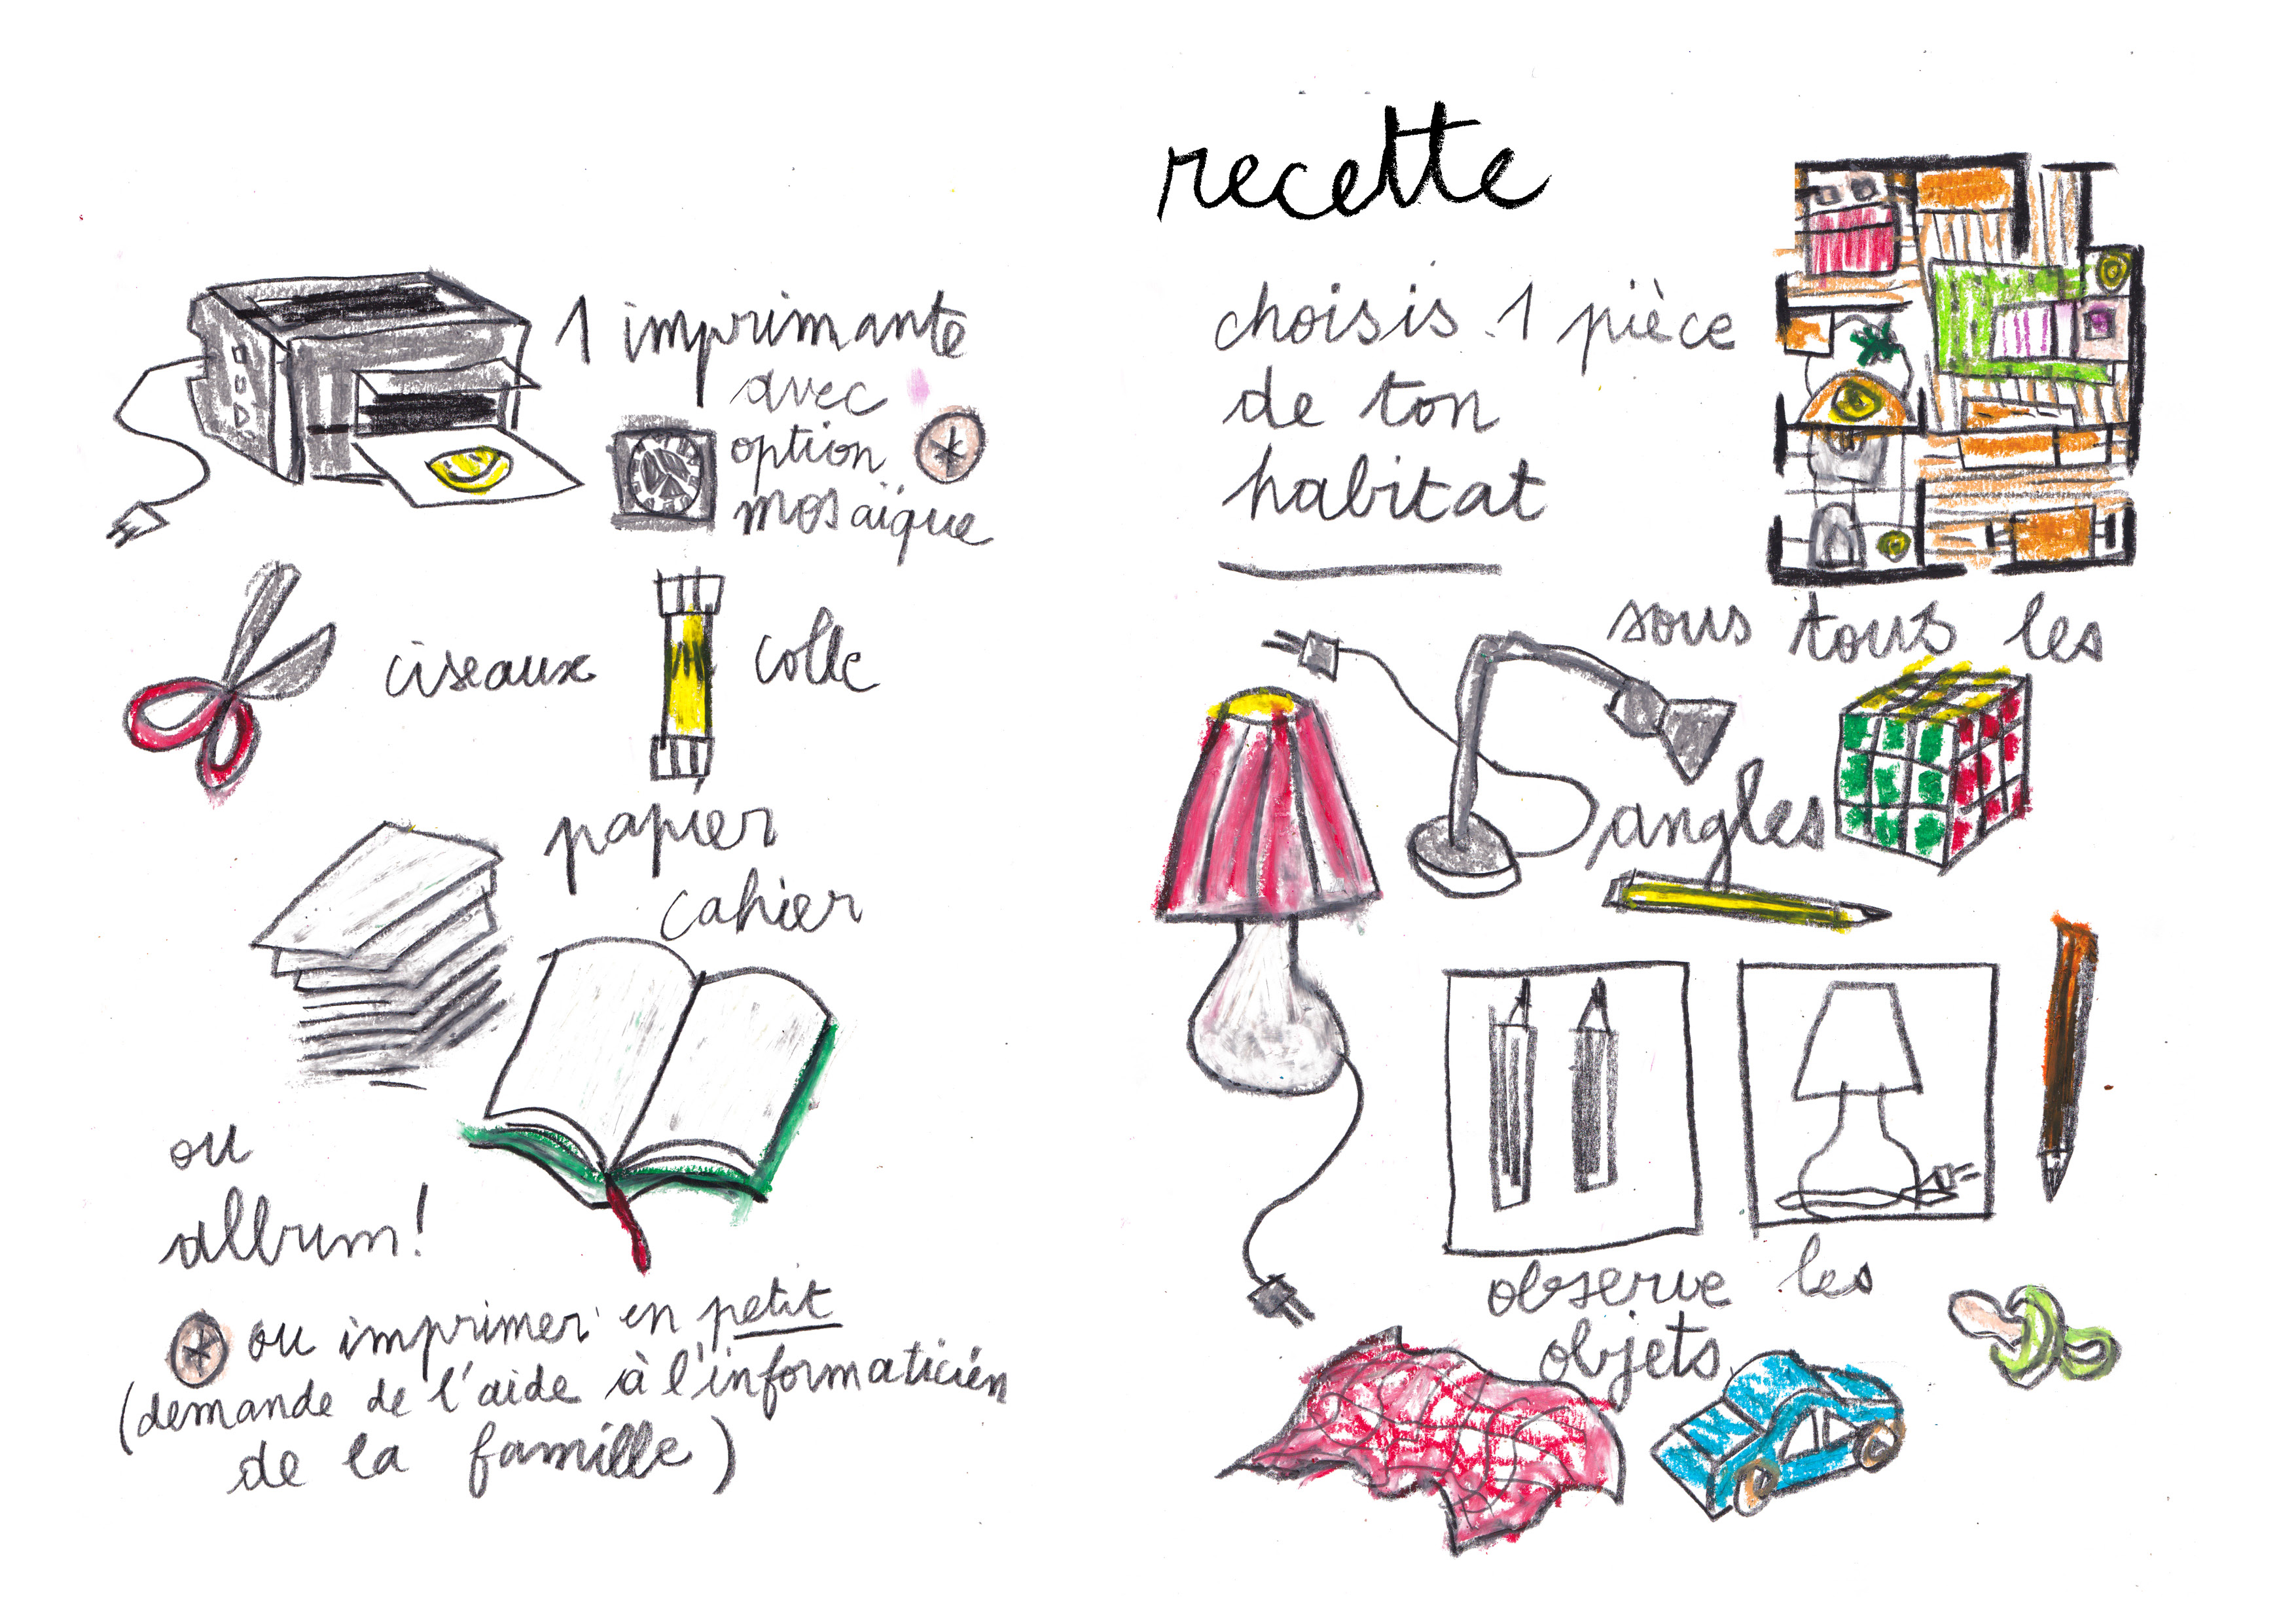 1 imprimante
avec
option *
mosaïque
ciseaux
colle
papier
cahier
ou
album!
* ou imprimer en petit
(demande de l'aide à l'informaticien
de la famille)
recette
choisis 1 pièce
de ton
habitat
sous tous les
angles
observe les
objets